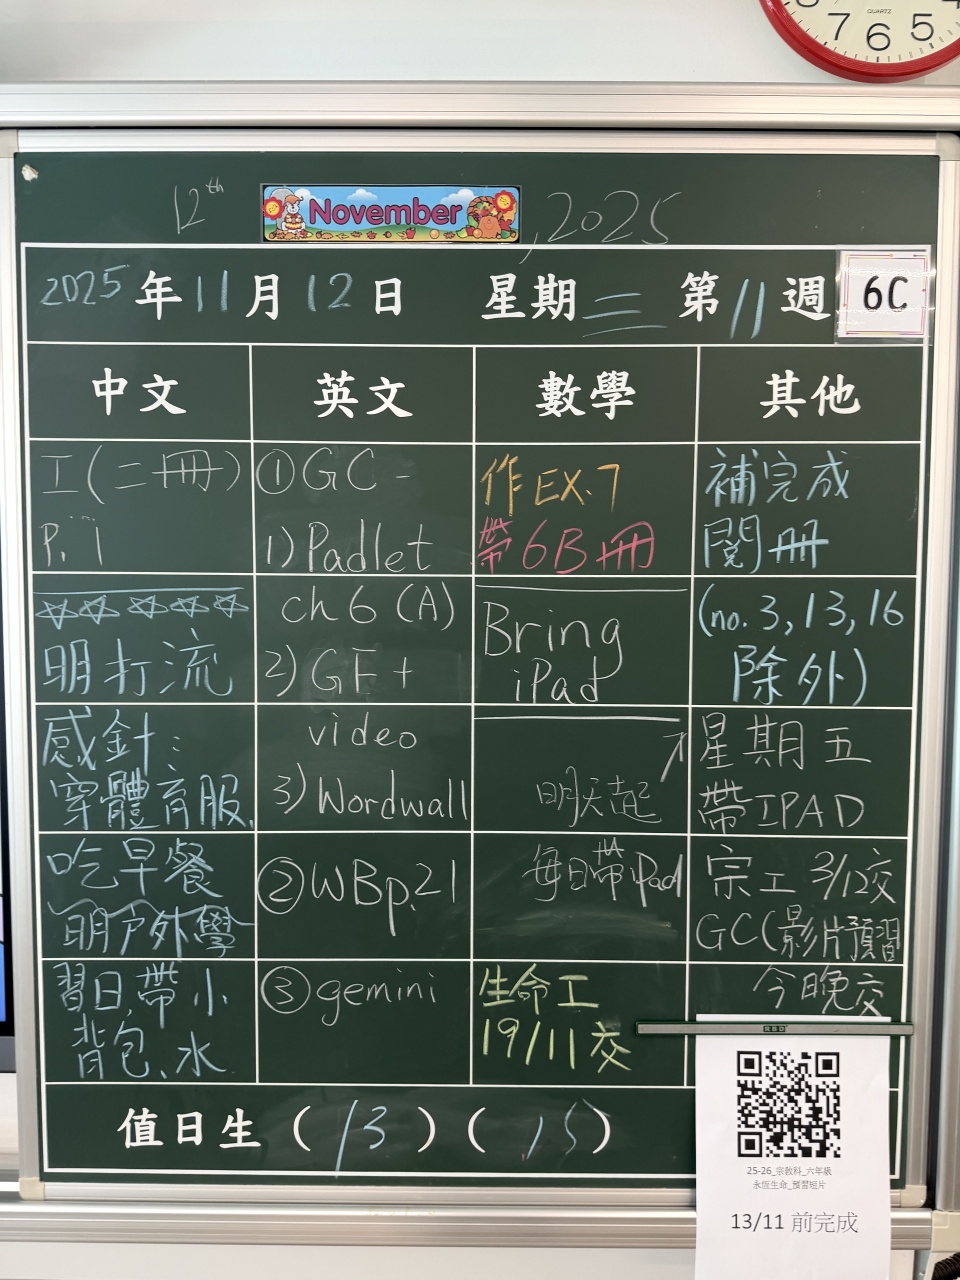 QUARTZ
7 6 5
12th November, 2025
2025年11月12日 星期三 第11週 6C
中文
英文
數學
其他
工(二冊)
P.1
☆☆☆☆☆
明打流
感針:
穿體育服、
吃早餐
明戶外學
習日,帶小
背包、水
①GC-
1)Padlet
ch6 (A)
2)GF+
video
3)Wordwall
②WBp.21
③gemini
作EX.7
帶6B冊
Bring
iPad
明天起
每日帶iPad
生命工
19/11交
補完成
閱冊
(no.3,13,16
除外)
星期五
帶IPAD
宗工 3/12交
GC(影片預習
今晚交
值日生 (13) (15)
25-26_宗教科_六年級
永恆生命_預習短片
13/11 前完成